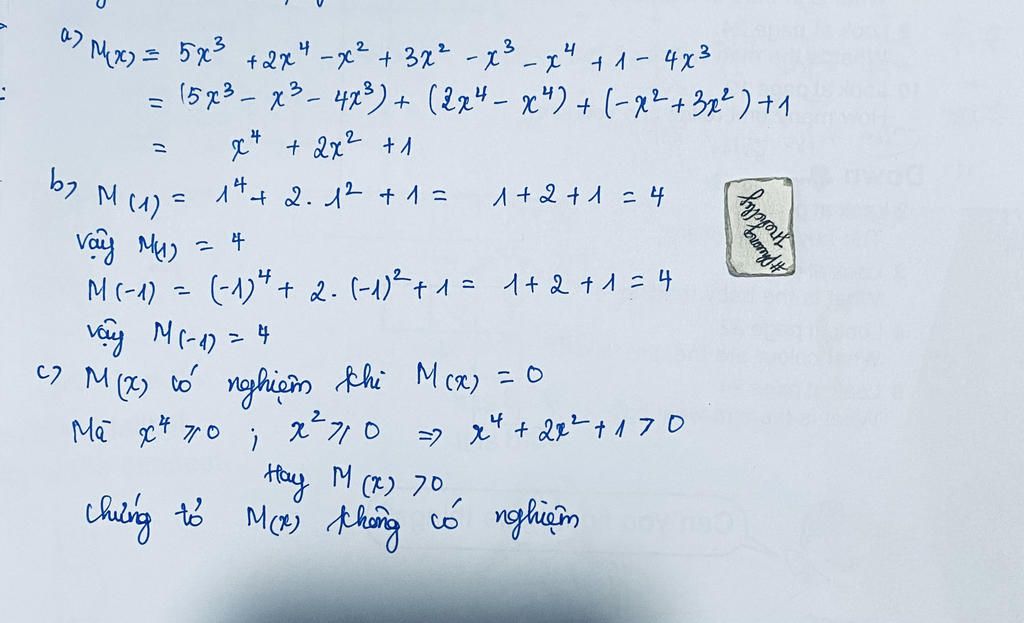 a) M(x) = 5x³ + 2x⁴ - x² + 3x² - x³ - x⁴ + 1 - 4x³
= (5x³ - x³ - 4x³) + (2x⁴ - x⁴) + (-x² + 3x²) + 1
= x⁴ + 2x² + 1
b) M(1) = 1⁴ + 2. 1² + 1 = 1 + 2 + 1 = 4
vậy M(1) = 4
M(-1) = (-1)⁴ + 2. (-1)² + 1 = 1 + 2 + 1 = 4
vậy M(-1) = 4
c) M(x) có nghiệm khi M(x) = 0
Mà x⁴ ≥ 0 ; x² ≥ 0 ⇒ x⁴ + 2x² + 1 > 0
Hay M(x) > 0
chứng tỏ M(x) không có nghiệm
#Phuong